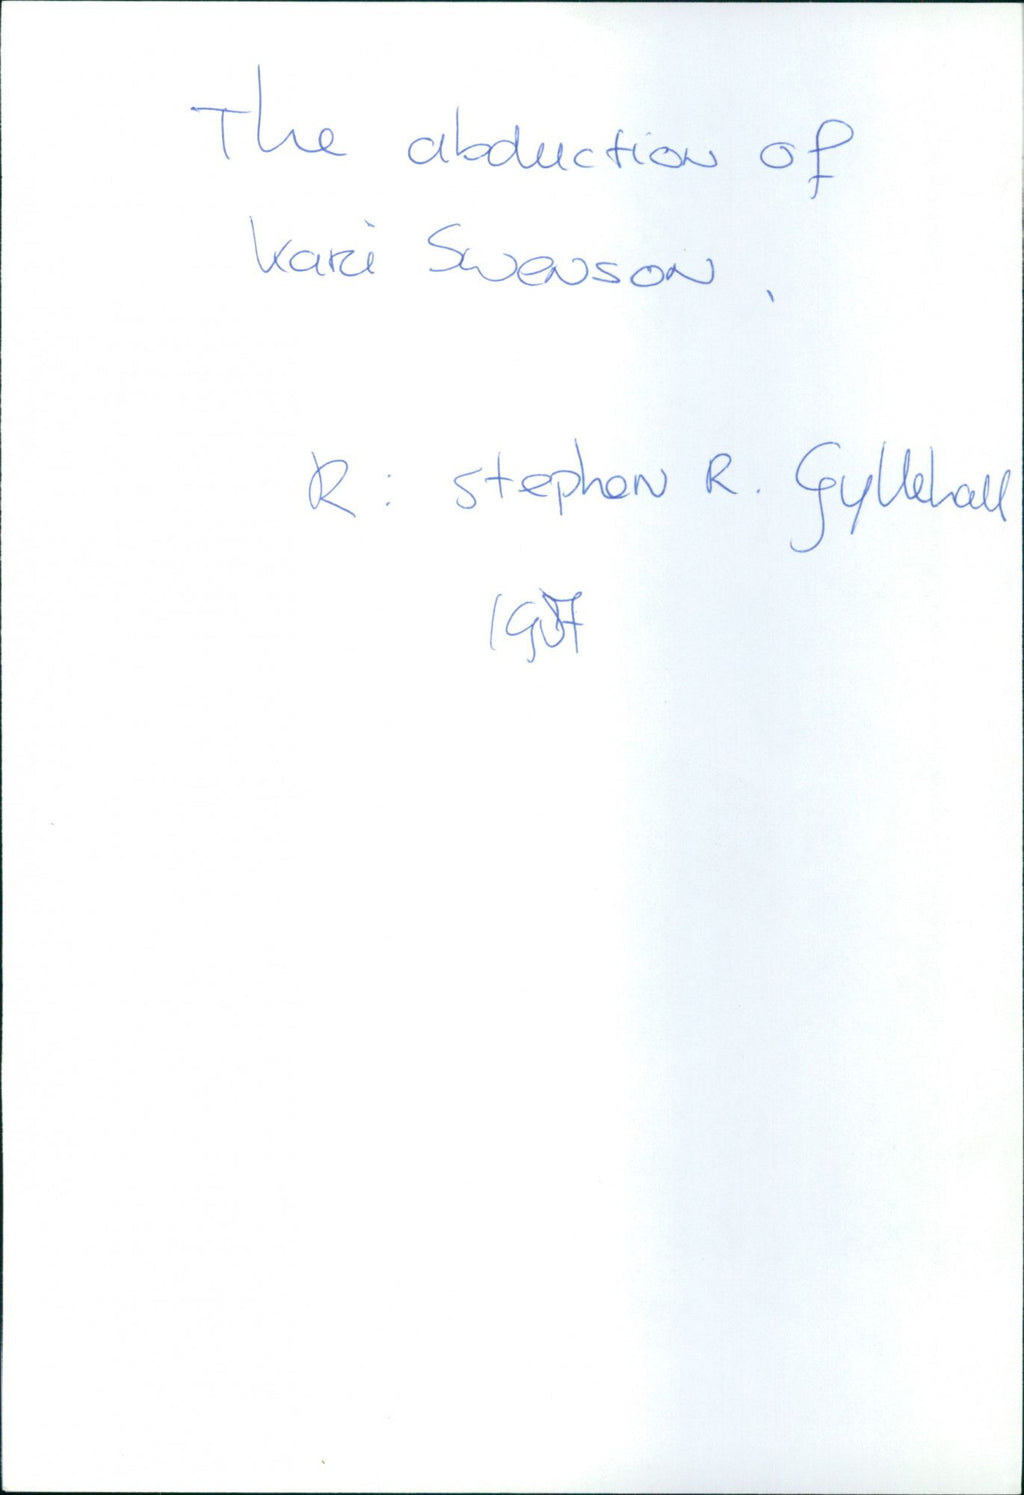 The abduction of
Kari Swenson.
R: stephen R. Gyllehall